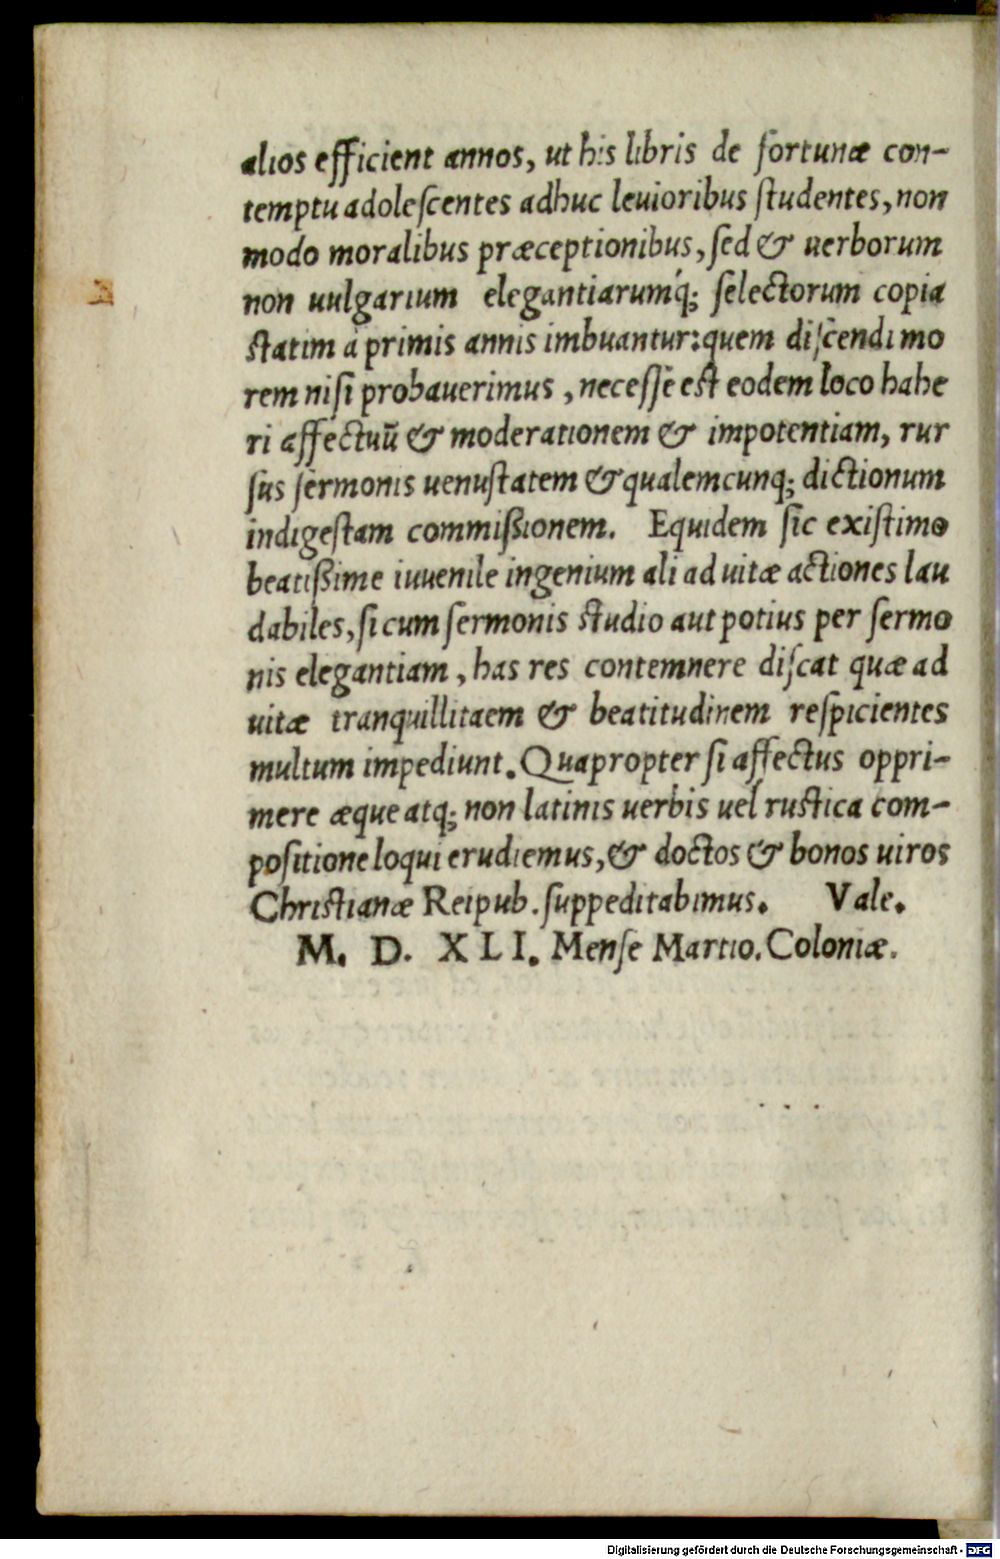 alios efficient annos, ut his libris de fortunæ con-
temptu adolescentes adhuc leuioribus studentes, non
modo moralibus præceptionibus, sed & uerborum
non uulgarium elegantiarumq́; selectorum copia
statim à primis annis imbuantur: quem discendi mo
rem nisi probauerimus, necesse est eodem loco habe
ri affectuū & moderationem & impotentiam, rur
sus sermonis uenustatem & qualemcunq; dictionum
indigestam commißionem. Equidem sic existimo
beatißime iuuenile ingenium ali ad uitæ actiones lau
dabiles, si cum sermonis studio aut potius per sermo
nis elegantiam, has res contemnere discat quæ ad
uitæ tranquillitaem & beatitudinem respicientes
multum impediunt. Quapropter si affectus oppri-
mere æque atq; non latinis uerbis uel rustica com-
positione loqui erudiemus, & doctos & bonos uiros
Christianæ Reipub. suppeditabimus. Vale.
M. D. XLI. Mense Martio. Coloniæ.
Digitalisierung gefördert durch die Deutsche Forschungsgemeinschaft - DFG